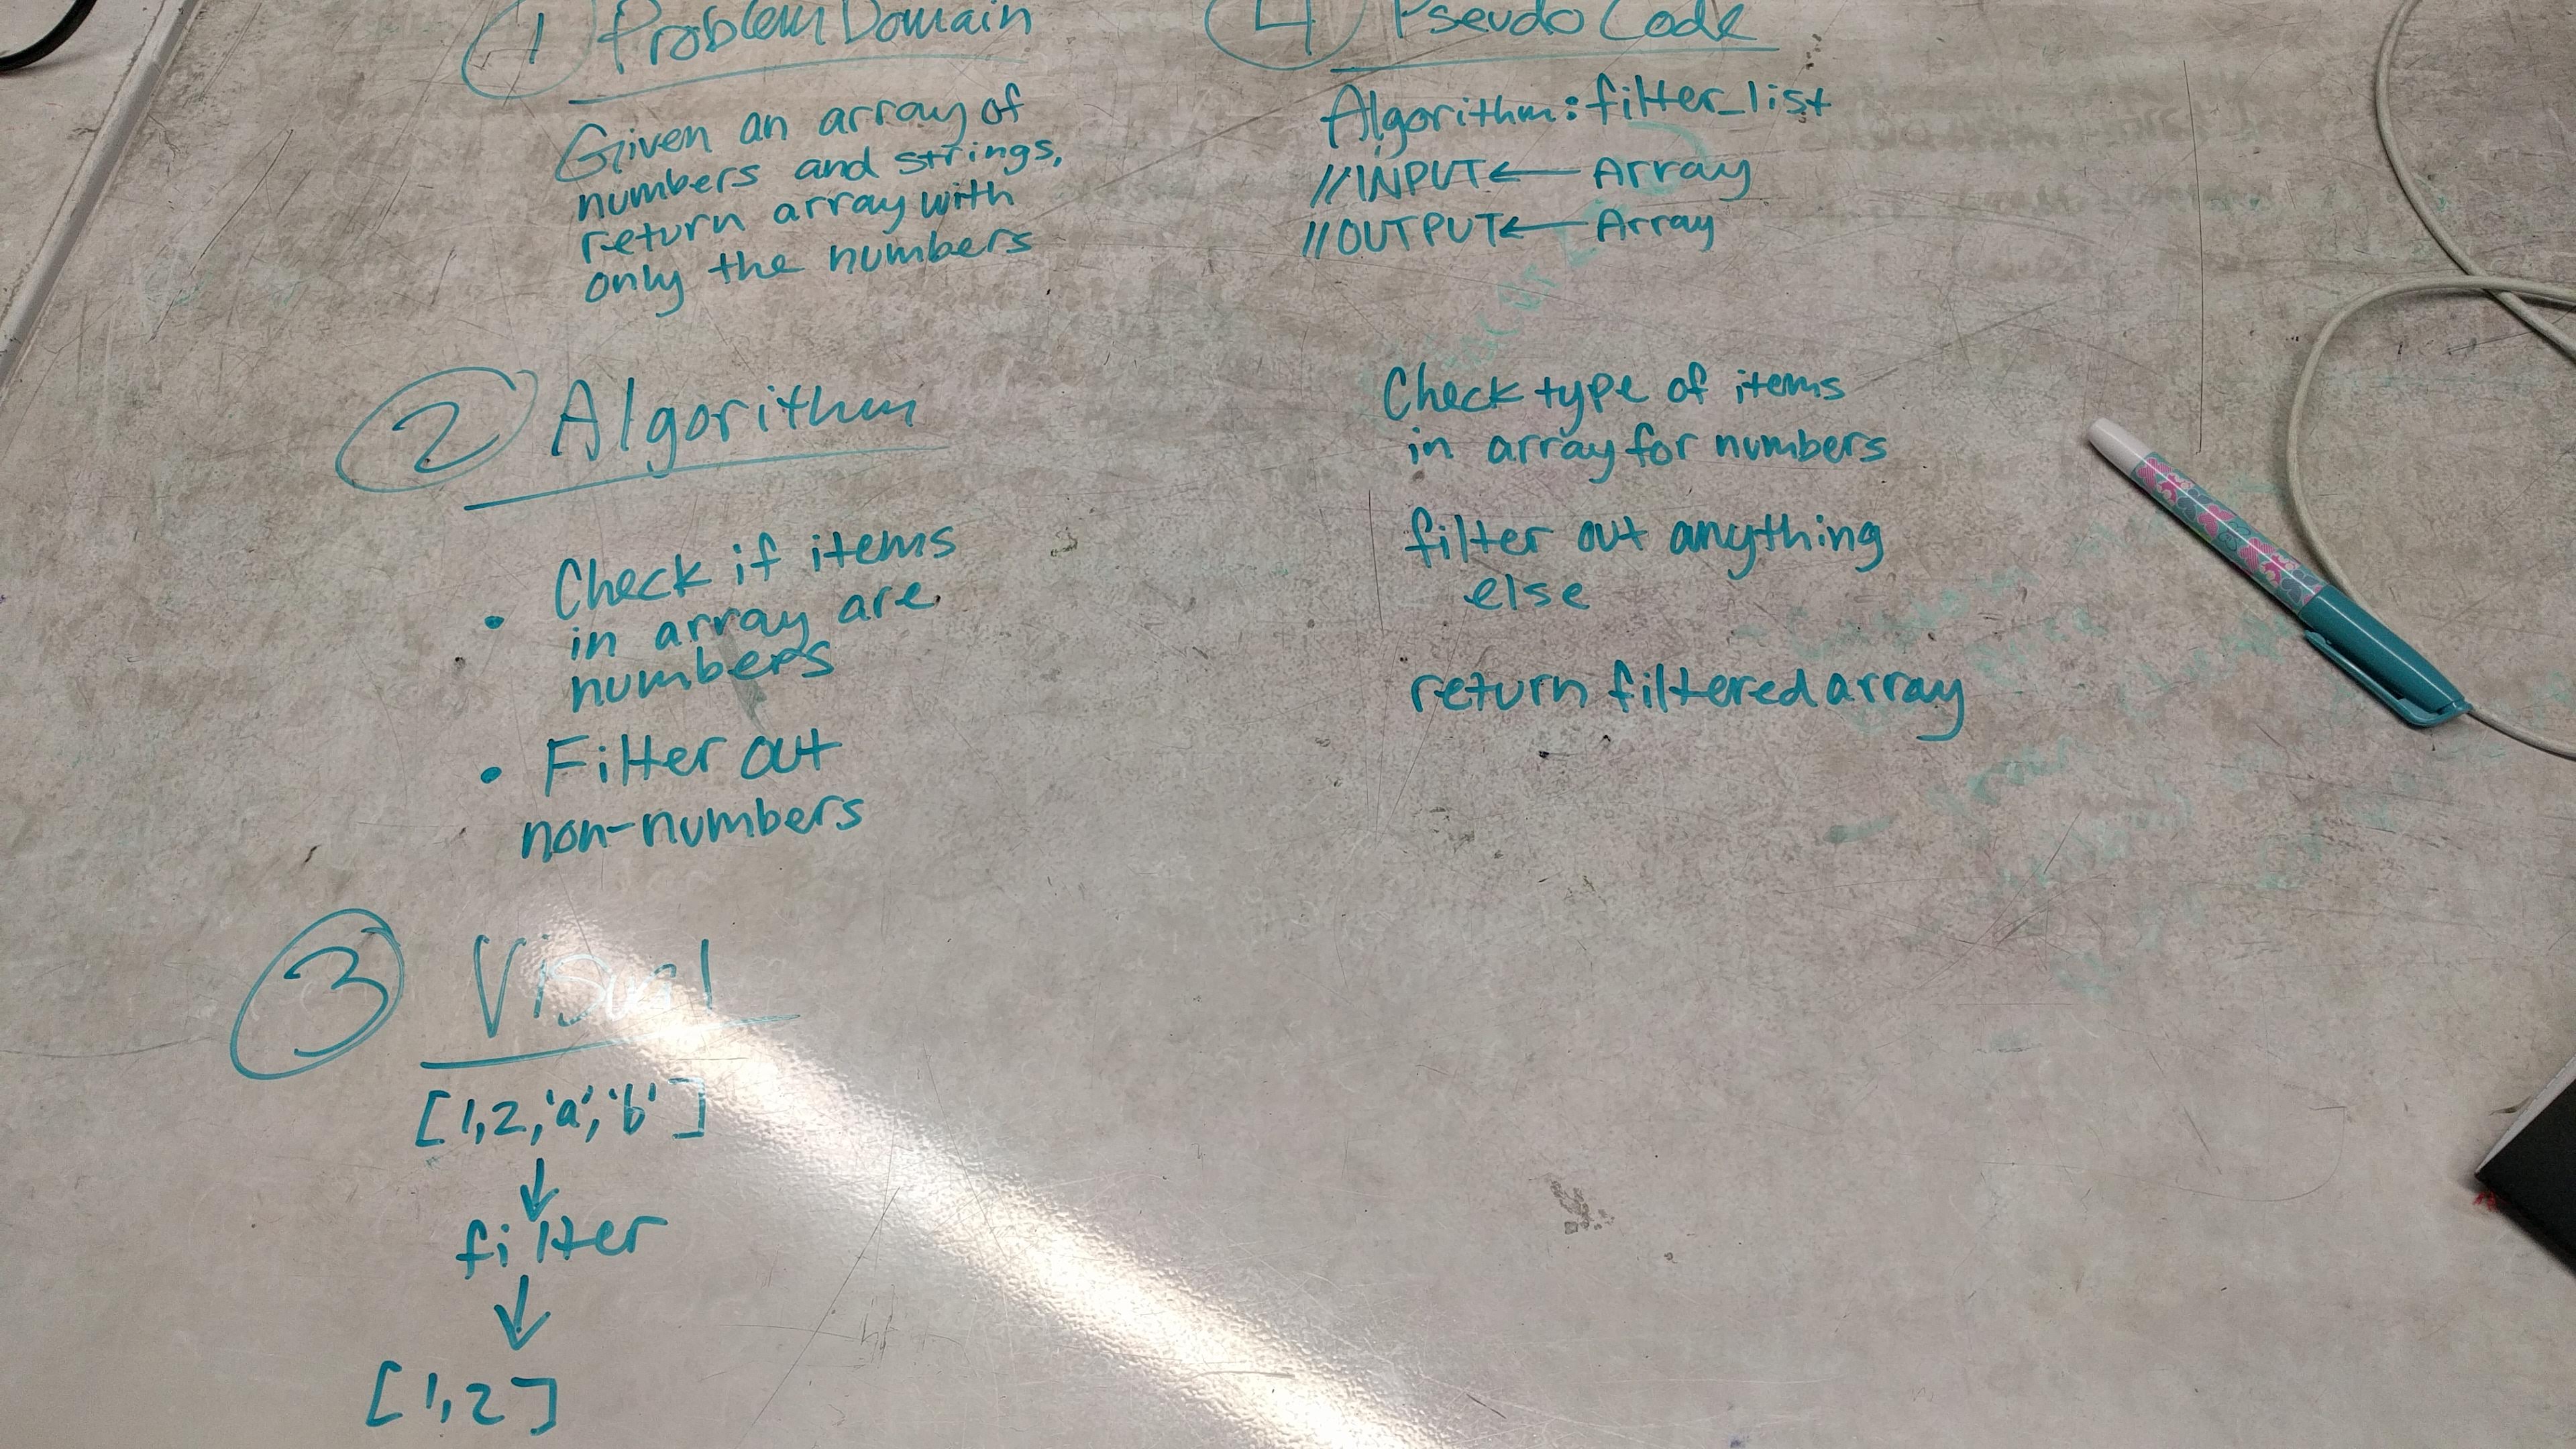 1 Problem Domain
Given an array of
numbers and strings,
return array with
only the numbers
2 Algorithm
• Check if items
in array are
numbers
• Filter out
non-numbers
3 Visual
[1,2,'a','b']
↓
filter
↓
[1,2]
4 Pseudo Code
Algorithm: filter_list
//INPUT ← Array
//OUTPUT ← Array
Check type of items
in array for numbers
filter out anything
else
return filtered array